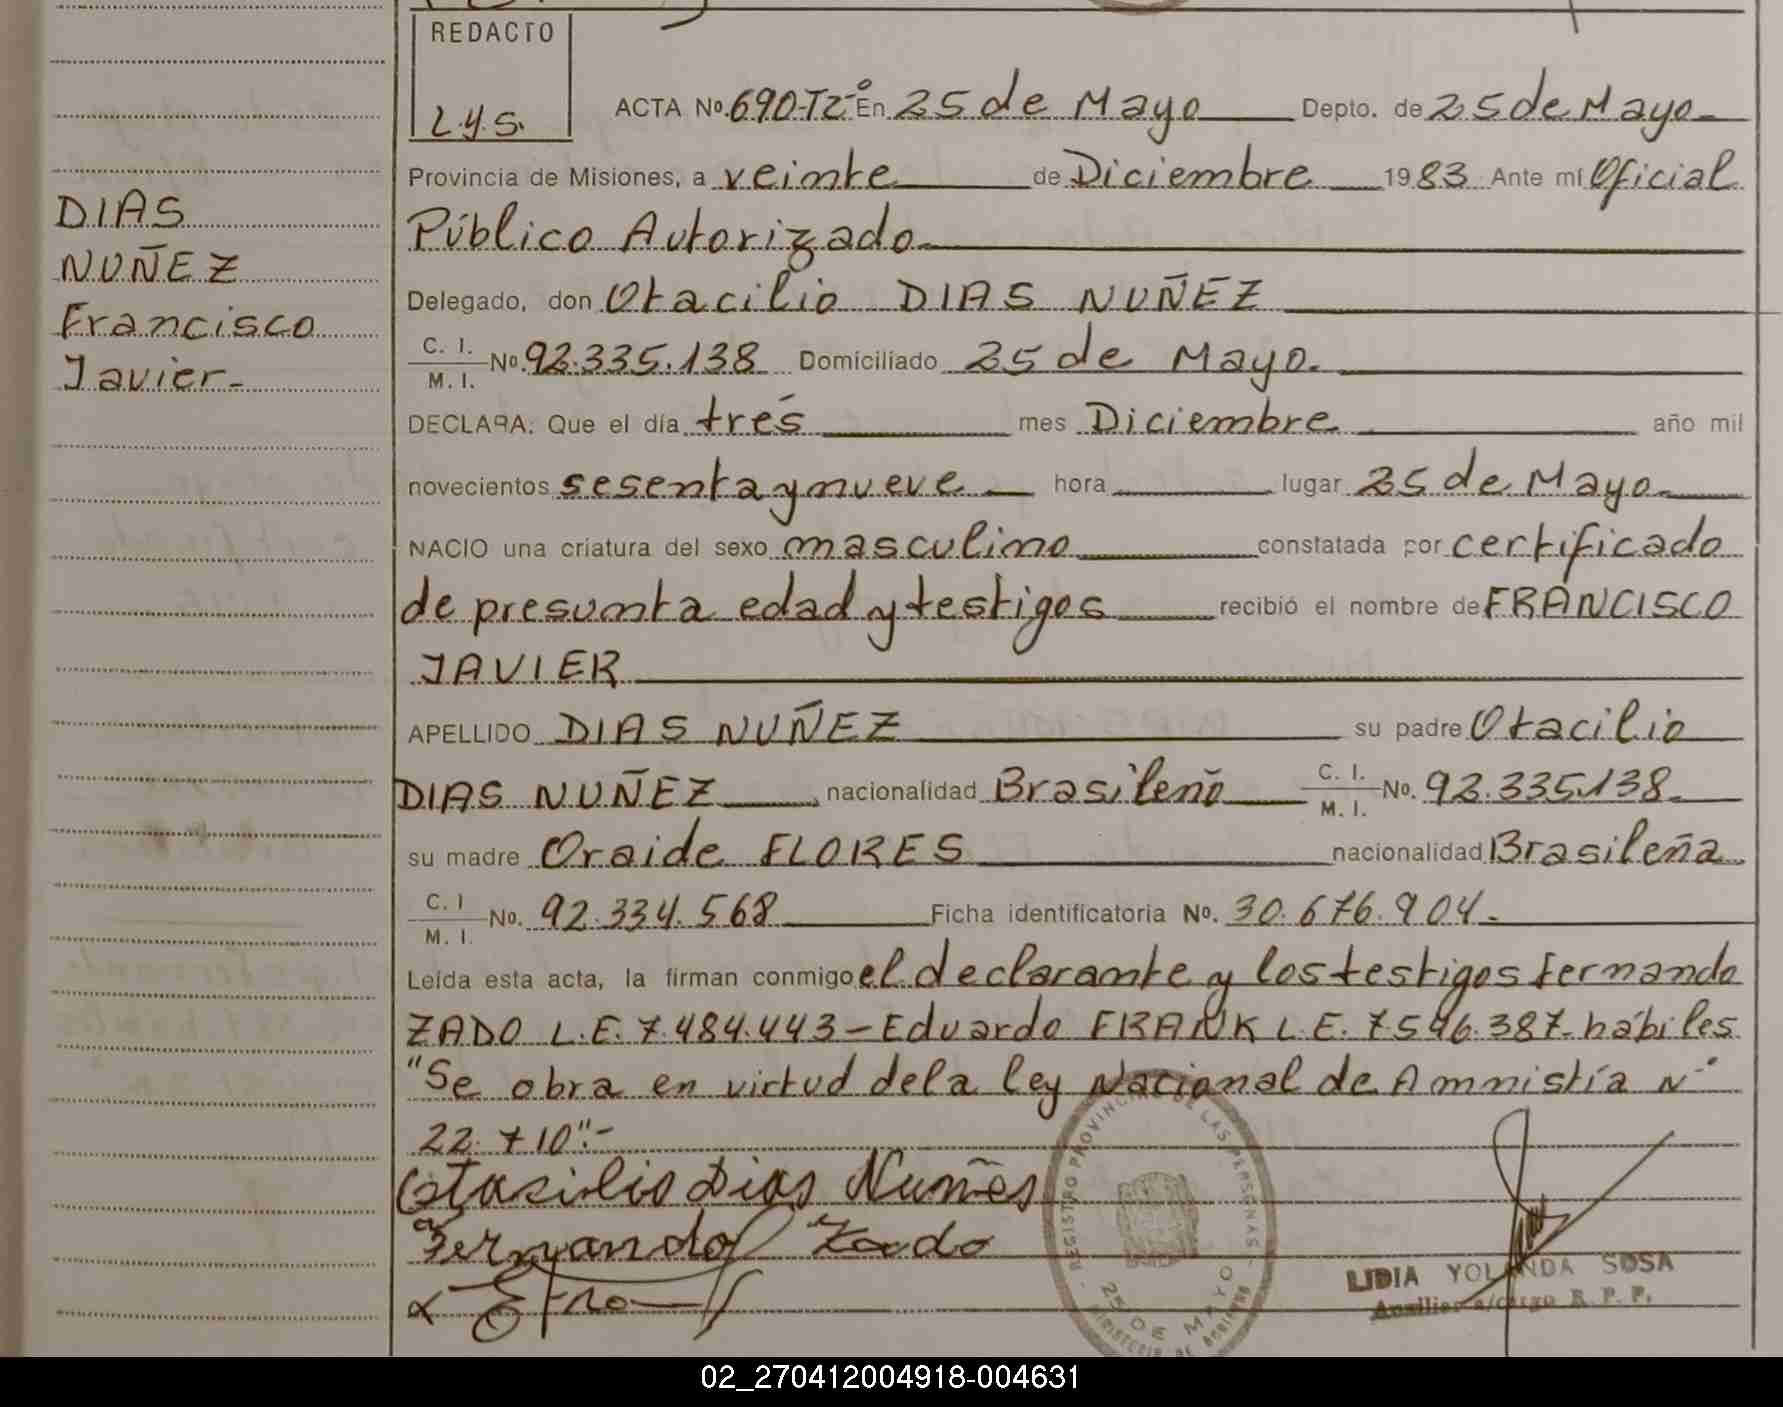 REDACTO
L.y.S.
ACTA Nº. 690-Tº2º En 25 de Mayo Depto. de 25 de Mayo
Provincia de Misiones, a veinte de Diciembre 1983 Ante mí Oficial
Público Autorizado
DIAS
NUÑEZ
Francisco
Javier-
Delegado, don Otacilio DIAS NUÑEZ
C. I.
M. I. Nº. 92.335.138 Domiciliado 25 de Mayo.
DECLARA: Que el día trés mes Diciembre año mil
novecientos sesenta y nueve hora lugar 25 de Mayo
NACIO una criatura del sexo masculino constatada por certificado
de presunta edad y testigos recibió el nombre de FRANCISCO
JAVIER
APELLIDO DIAS NUÑEZ su padre Otacilio
DIAS NUÑEZ, nacionalidad Brasileño C. I.
M. I. Nº. 92.335.138
su madre Oraide FLORES nacionalidad Brasileña
C. I
M. I. Nº. 92.334.568 Ficha identificatoria Nº. 30.676.904.
Leída esta acta, la firman conmigo el declarante y los testigos Fernando
ZADO L.E. 7.484.443 - Eduardo FRANK L.E. 7.546.387- hábiles
"Se obra en virtud de la ley Nacional de Amnistía Nº
22.710".-
Otasilio Dias Nuñes
Fernando Zado
REGISTRO PROVINCIAL DE LAS PERSONAS
25 DE MAYO
MINISTERIO DE GOBIERNO
LIDIA YOLANDA SOSA
Auxiliar a/cargo R. P. P.
02_270412004918-004631